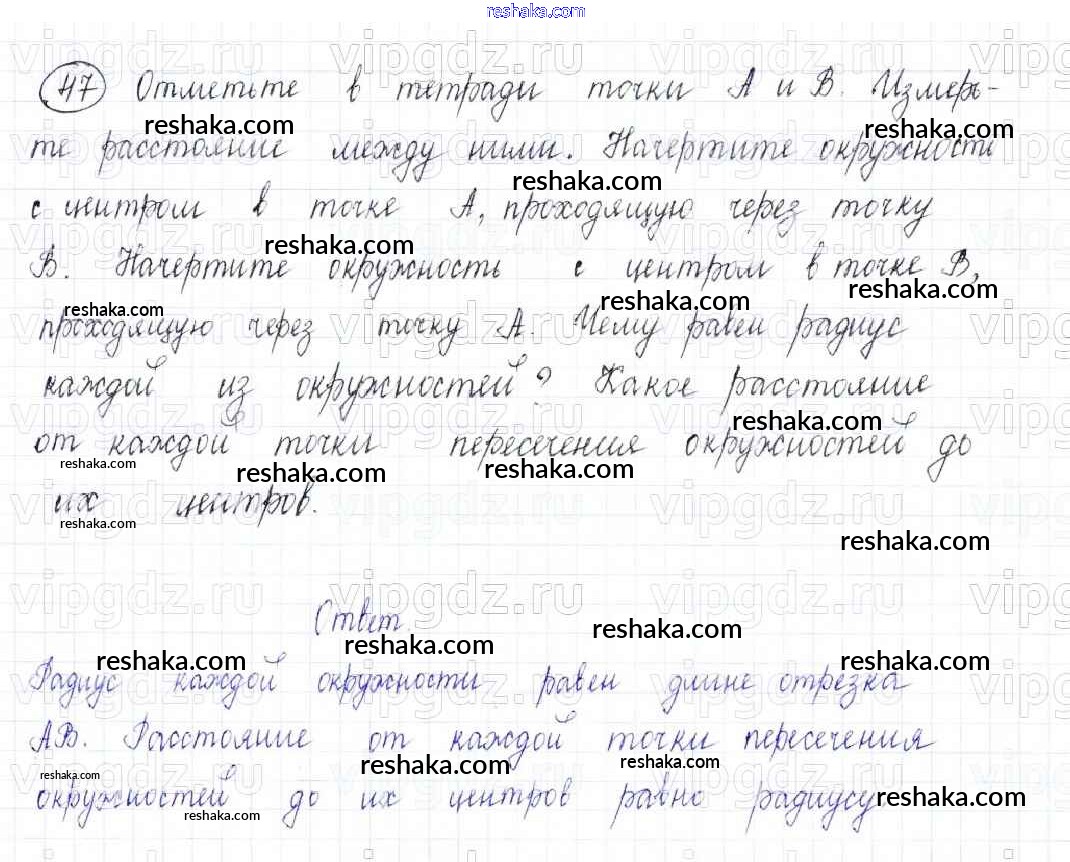 reshaka.com
47 Отметьте в тетради точки А и В. Измерь-
те расстояние между ними. Начертите окружности
с центром в точке А, проходящую через точку
В. Начертите окружность с центром в точке В,
проходящую через точку А. Чему равен радиус
каждой из окружностей? Какое расстояние
от каждой точки пересечения окружностей до
их центров.
Ответ.
Радиус каждой окружности равен длине отрезка
АВ. Расстояние от каждой точки пересечения
окружностей до их центров равно радиусу